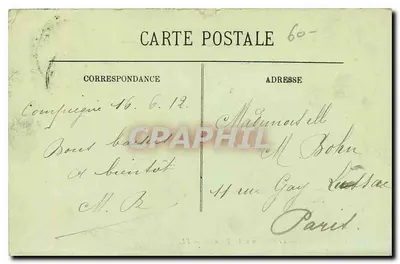 CARTE POSTALE
60-
CORRESPONDANCE
Compiègne 16.6.12
Bons baisers
& bientôt
M. B
ADRESSE
Mademoiselle
M Bohn
11 rue Gay Lussac
Paris.
CPAPHIL.COM